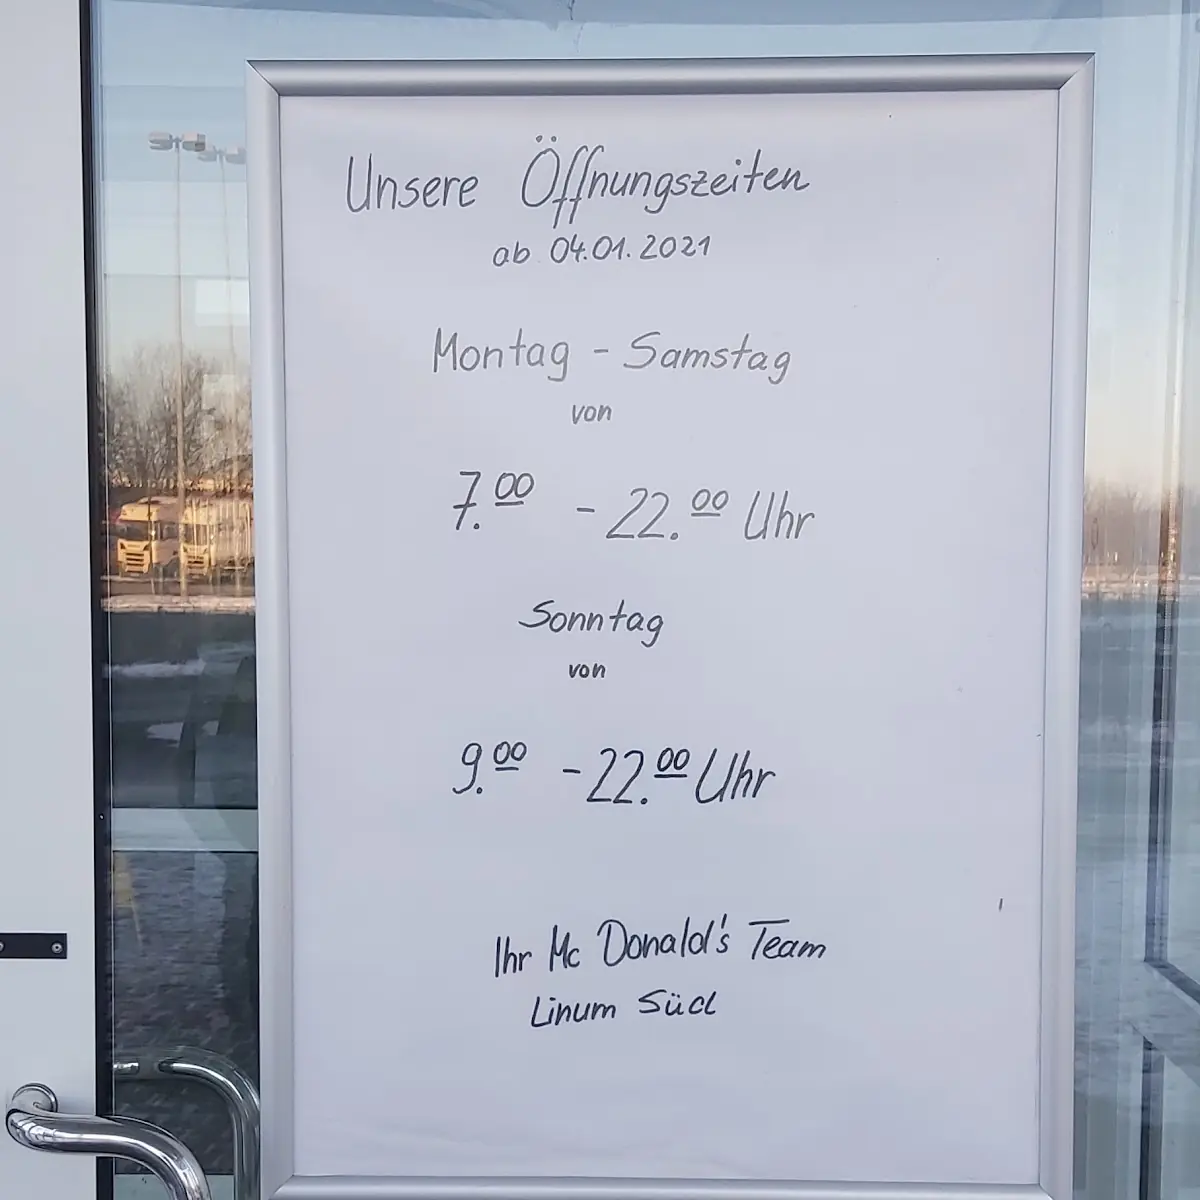 Unsere Öffnungszeiten
ab 04.01.2021
Montag - Samstag
von
7.00 - 22.00 Uhr
Sonntag
von
9.00 - 22.00 Uhr
Ihr Mc Donald's Team
Linum Süd